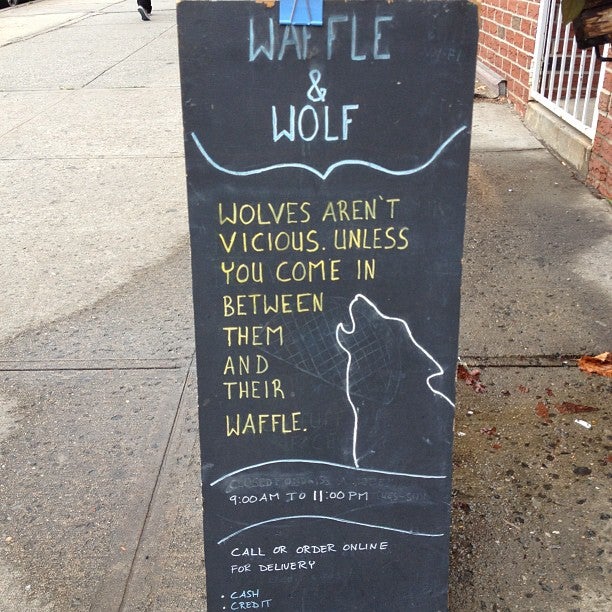 WAFFLE
&
WOLF
WOLVES AREN'T
VICIOUS. UNLESS
YOU COME IN
BETWEEN
THEM
AND
THEIR
WAFFLE.
9:00AM TO 11:00PM
CALL OR ORDER ONLINE
FOR DELIVERY
• CASH
• CREDIT